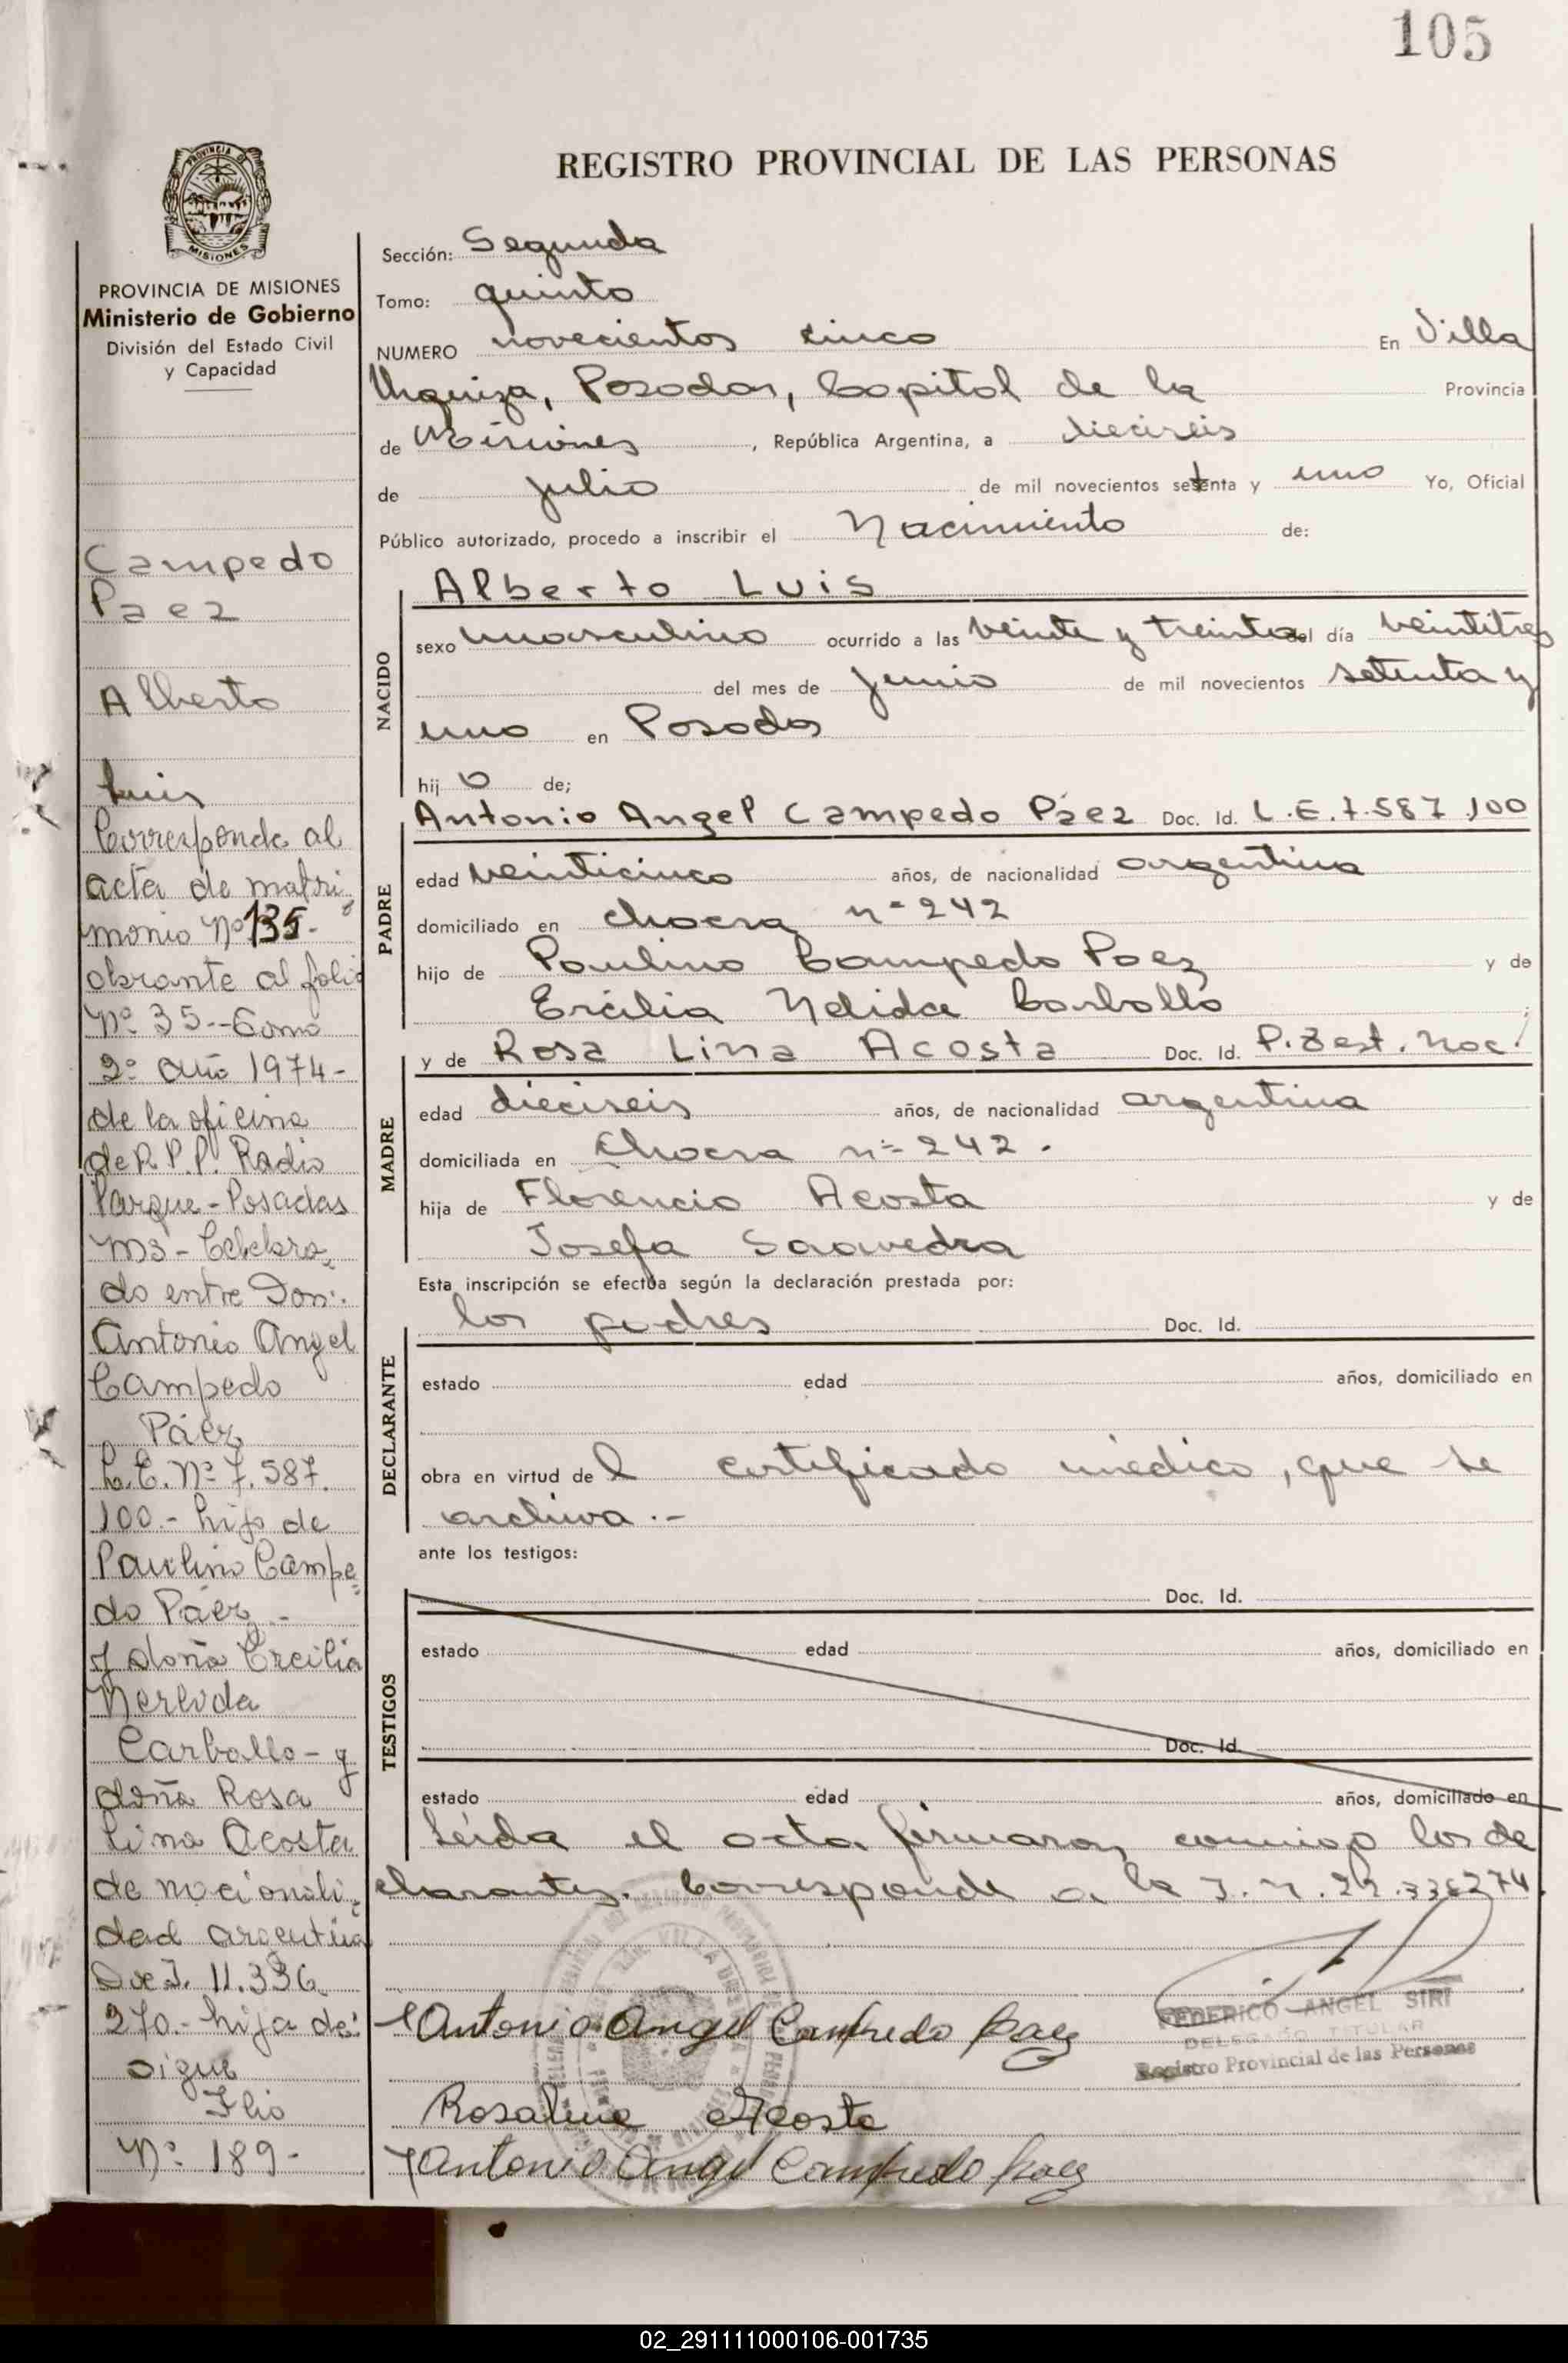 105
REGISTRO PROVINCIAL DE LAS PERSONAS
PROVINCIA DE
MISIONES
PROVINCIA DE MISIONES
Ministerio de Gobierno
División del Estado Civil
y Capacidad
Campedo
Paez
Alberto
Luis
Corresponde al
acta de matri
monio Nº 135-
obrante al folio
Nº 35--Tomo
2º Año 1974-
de la oficina
de R.P.P. Radio
Parque-Posadas
Ms- Celebra
do entre Don:
Antonio Angel
Campedo
Páez
L.E. Nº 7.587.
100.- hijo de
Paulino Campe
do Páez -
y doña Ercilia
Nerlida
Carballo - y
doña Rosa
Lina Acosta
de nacionali
dad argentina
Doc I. 11.336.
270.- hija de:
sigue
Flio
Nº 189-
Sección: Segunda
Tomo: quinto
NUMERO novecientos cinco En Villa
Urquiza, Posadas, Capital de la Provincia
de Misiones, República Argentina, a dieciseis
de julio de mil novecientos setenta y uno Yo, Oficial
Público autorizado, procedo a inscribir el Nacimiento de:
NACIDO
Alberto Luis
sexo masculino ocurrido a las veinte y treinta del día veintitres
del mes de junio de mil novecientos setenta y
uno en Posadas
hijo de;
PADRE
Antonio Angel Campedo Páez Doc. Id. L.E.7.587.100
edad veinticinco años, de nacionalidad argentina
domiciliado en chacra nº 242
hijo de Paulino Campedo Paez y de
Ercilia Nelida Carballo ;
MADRE
y de Rosa Lina Acosta Doc. Id. P. Test. Nac.
edad dieciseis años, de nacionalidad argentina
domiciliada en Chacra nº 242.
hija de Florencio Acosta y de
Josefa Saavedra
Esta inscripción se efectúa según la declaración prestada por:
DECLARANTE
los padres Doc. Id.
estado edad años, domiciliado en
obra en virtud del certificado médico, que se
archiva.-
ante los testigos:
TESTIGOS
Doc. Id.
estado edad años, domiciliado en
Doc. Id.
estado edad años, domiciliado en
Leida el acta firmaron conmigo los de
clarantes. Corresponde a la I.N.22.336274.
Antonio Angel Campedo Paez
FEDERICO ANGEL SIRI
DELEGADO TITULAR
Registro Provincial de las Personas
Rosalina Acosta
Antonio Angel Campedo Paez
02_291111000106-001735